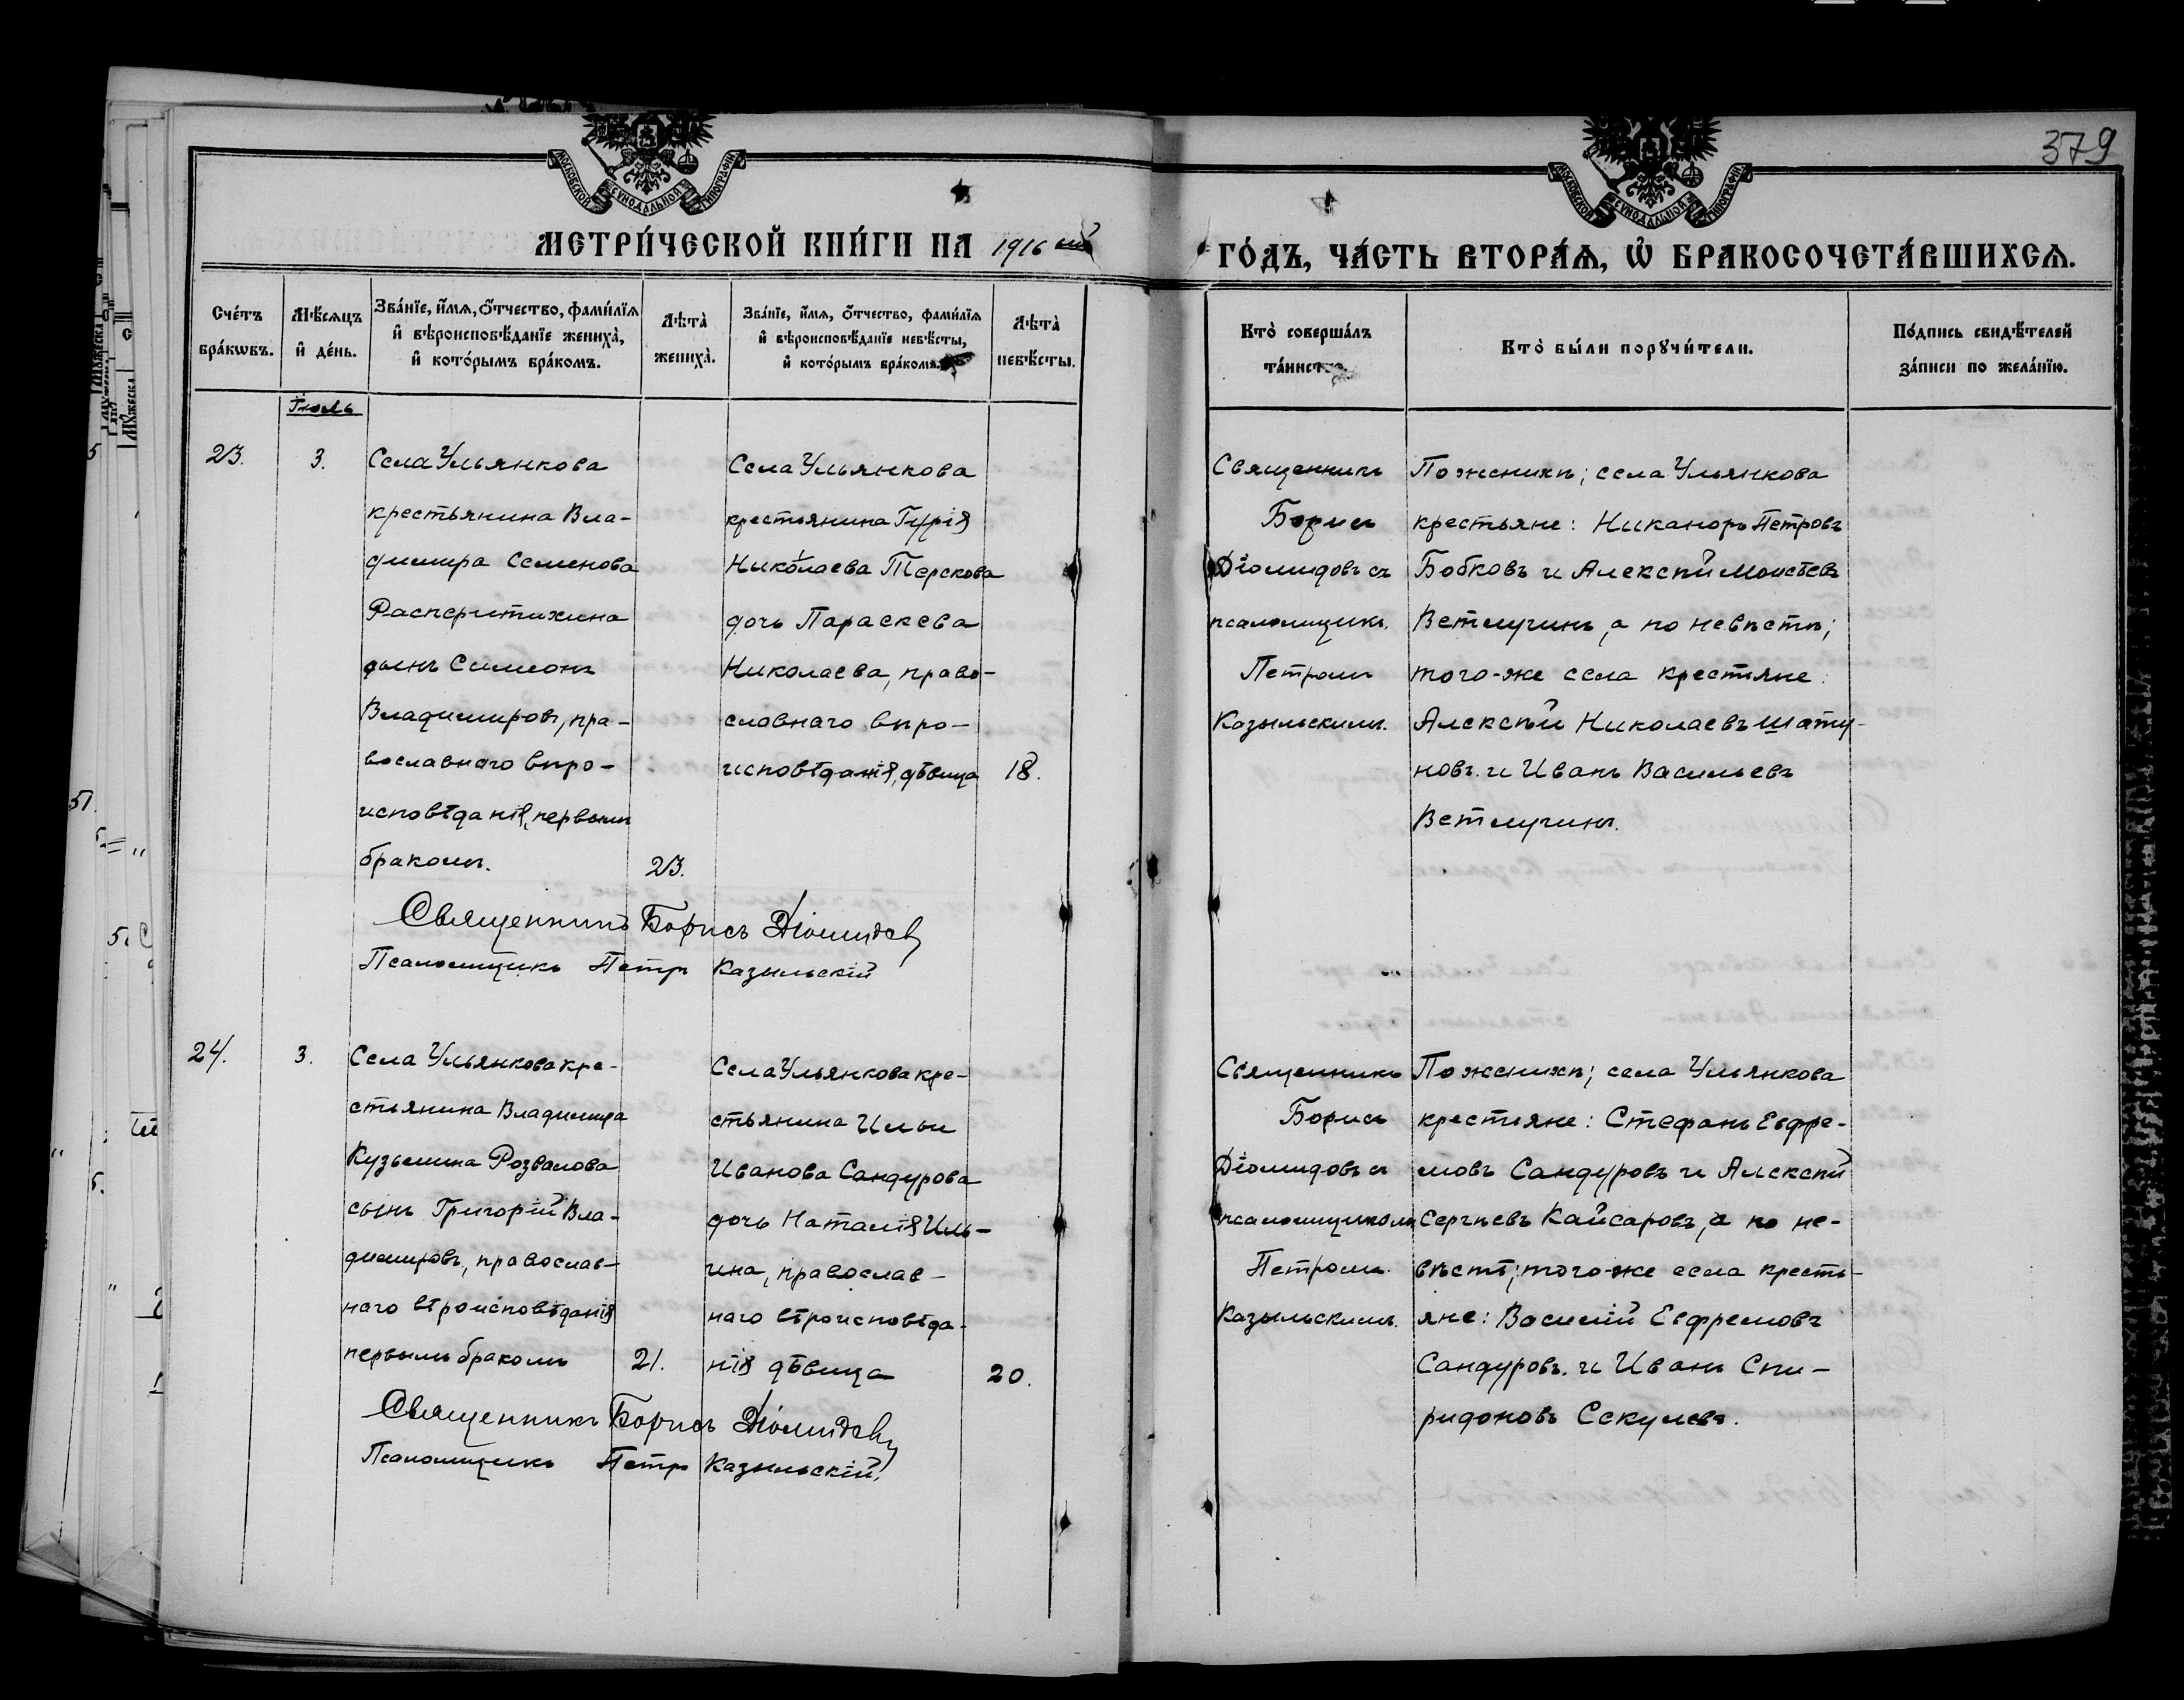 379
МОСКОВСКОЙ СѴНОДАЛЬНОЙ ТИПОГРАФІИ
МОСКОВСКОЙ СѴНОДАЛЬНОЙ ТИПОГРАФІИ
МЕТРИ́ЧЕСКОЙ КНИ́ГИ НА 1916 ый
ГО́ДЪ, ЧА́СТЬ ВТОРА́Ѧ, Ѿ БРАКОСОЧЕТА́ВШИХСѦ.
Сче́тъ
бра́кѡвъ.
Мѣ́сѧцъ
и҆ де́нь.
Зва́нїе, и҆́мѧ, ѻ҆́тчество, фами́лїѧ
и҆ вѣроисповѣ́данїе жениха̀,
и҆ кото́рымъ бра́комъ.
Лѣта̀
жениха̀.
Зва́нїе, и҆́мѧ, ѻ҆́тчество, фами́лїѧ
и҆ вѣроисповѣ́данїе невѣ́сты,
и҆ кото́рымъ бра́комъ.
Лѣта̀
невѣ́сты.
Кто̀ соверша́лъ
та́инство.
Кто̀ бы́ли порꙋчи́тели.
По́дпись свидѣ́телей
за́писи по жела́нїю.
Іюль
23.
3.
Села Ульянкова
крестьянина Вла-
димира Семенова
Распертихина
сынъ Симеонъ
Владимировъ, пра-
вославнаго вѣро-
исповѣданія, первымъ
бракомъ.
23.
Села Ульянкова
крестьянина Гурія
Николаева Терскова
дочь Параскева
Николаева, право-
славнаго вѣро-
исповѣданія, дѣвица
18.
Священникъ
Борисъ
Діомидовъ съ
псаломщик.
Петромъ
Казыльскимъ.
По женихѣ; села Ульянкова
крестьяне: Никаноръ Петровъ
Бобковъ и Алексѣй Моисѣевъ
Ветлугинъ, а по невѣстѣ;
того-же села крестьяне:
Алексѣй Николаевъ Шату-
новъ и Иванъ Васильевъ
Ветлугинъ.
Священникъ Борисъ Діомидовъ
Псаломщикъ Петръ Казыльскій
24.
3.
Села Ульянкова кре-
стьянина Владимира
Кузьмина Розвалова
сынъ Григорій Вла-
димировъ, православ-
наго вѣроисповѣданія
первымъ бракомъ
21.
Села Ульянкова кре-
стьянина Ильи
Иванова Сандурова
дочь Наталія Иль-
ина, православ-
наго вѣроисповѣда-
нія дѣвица
20.
Священникъ
Борисъ
Діомидовъ съ
псаломщикомъ
Петромъ
Казыльскимъ.
По женихѣ; села Ульянкова
крестьяне: Стефанъ Евфре-
мовъ Сандуровъ и Алексѣй
Сергѣевъ Кайсаровъ, а по не-
вѣстѣ; того-же села кресть-
яне: Василій Евфремовъ
Сандуровъ и Иванъ Спи-
ридоновъ Секулевъ.
Священникъ Борисъ Діомидовъ
Псаломщикъ Петръ Казыльскій.